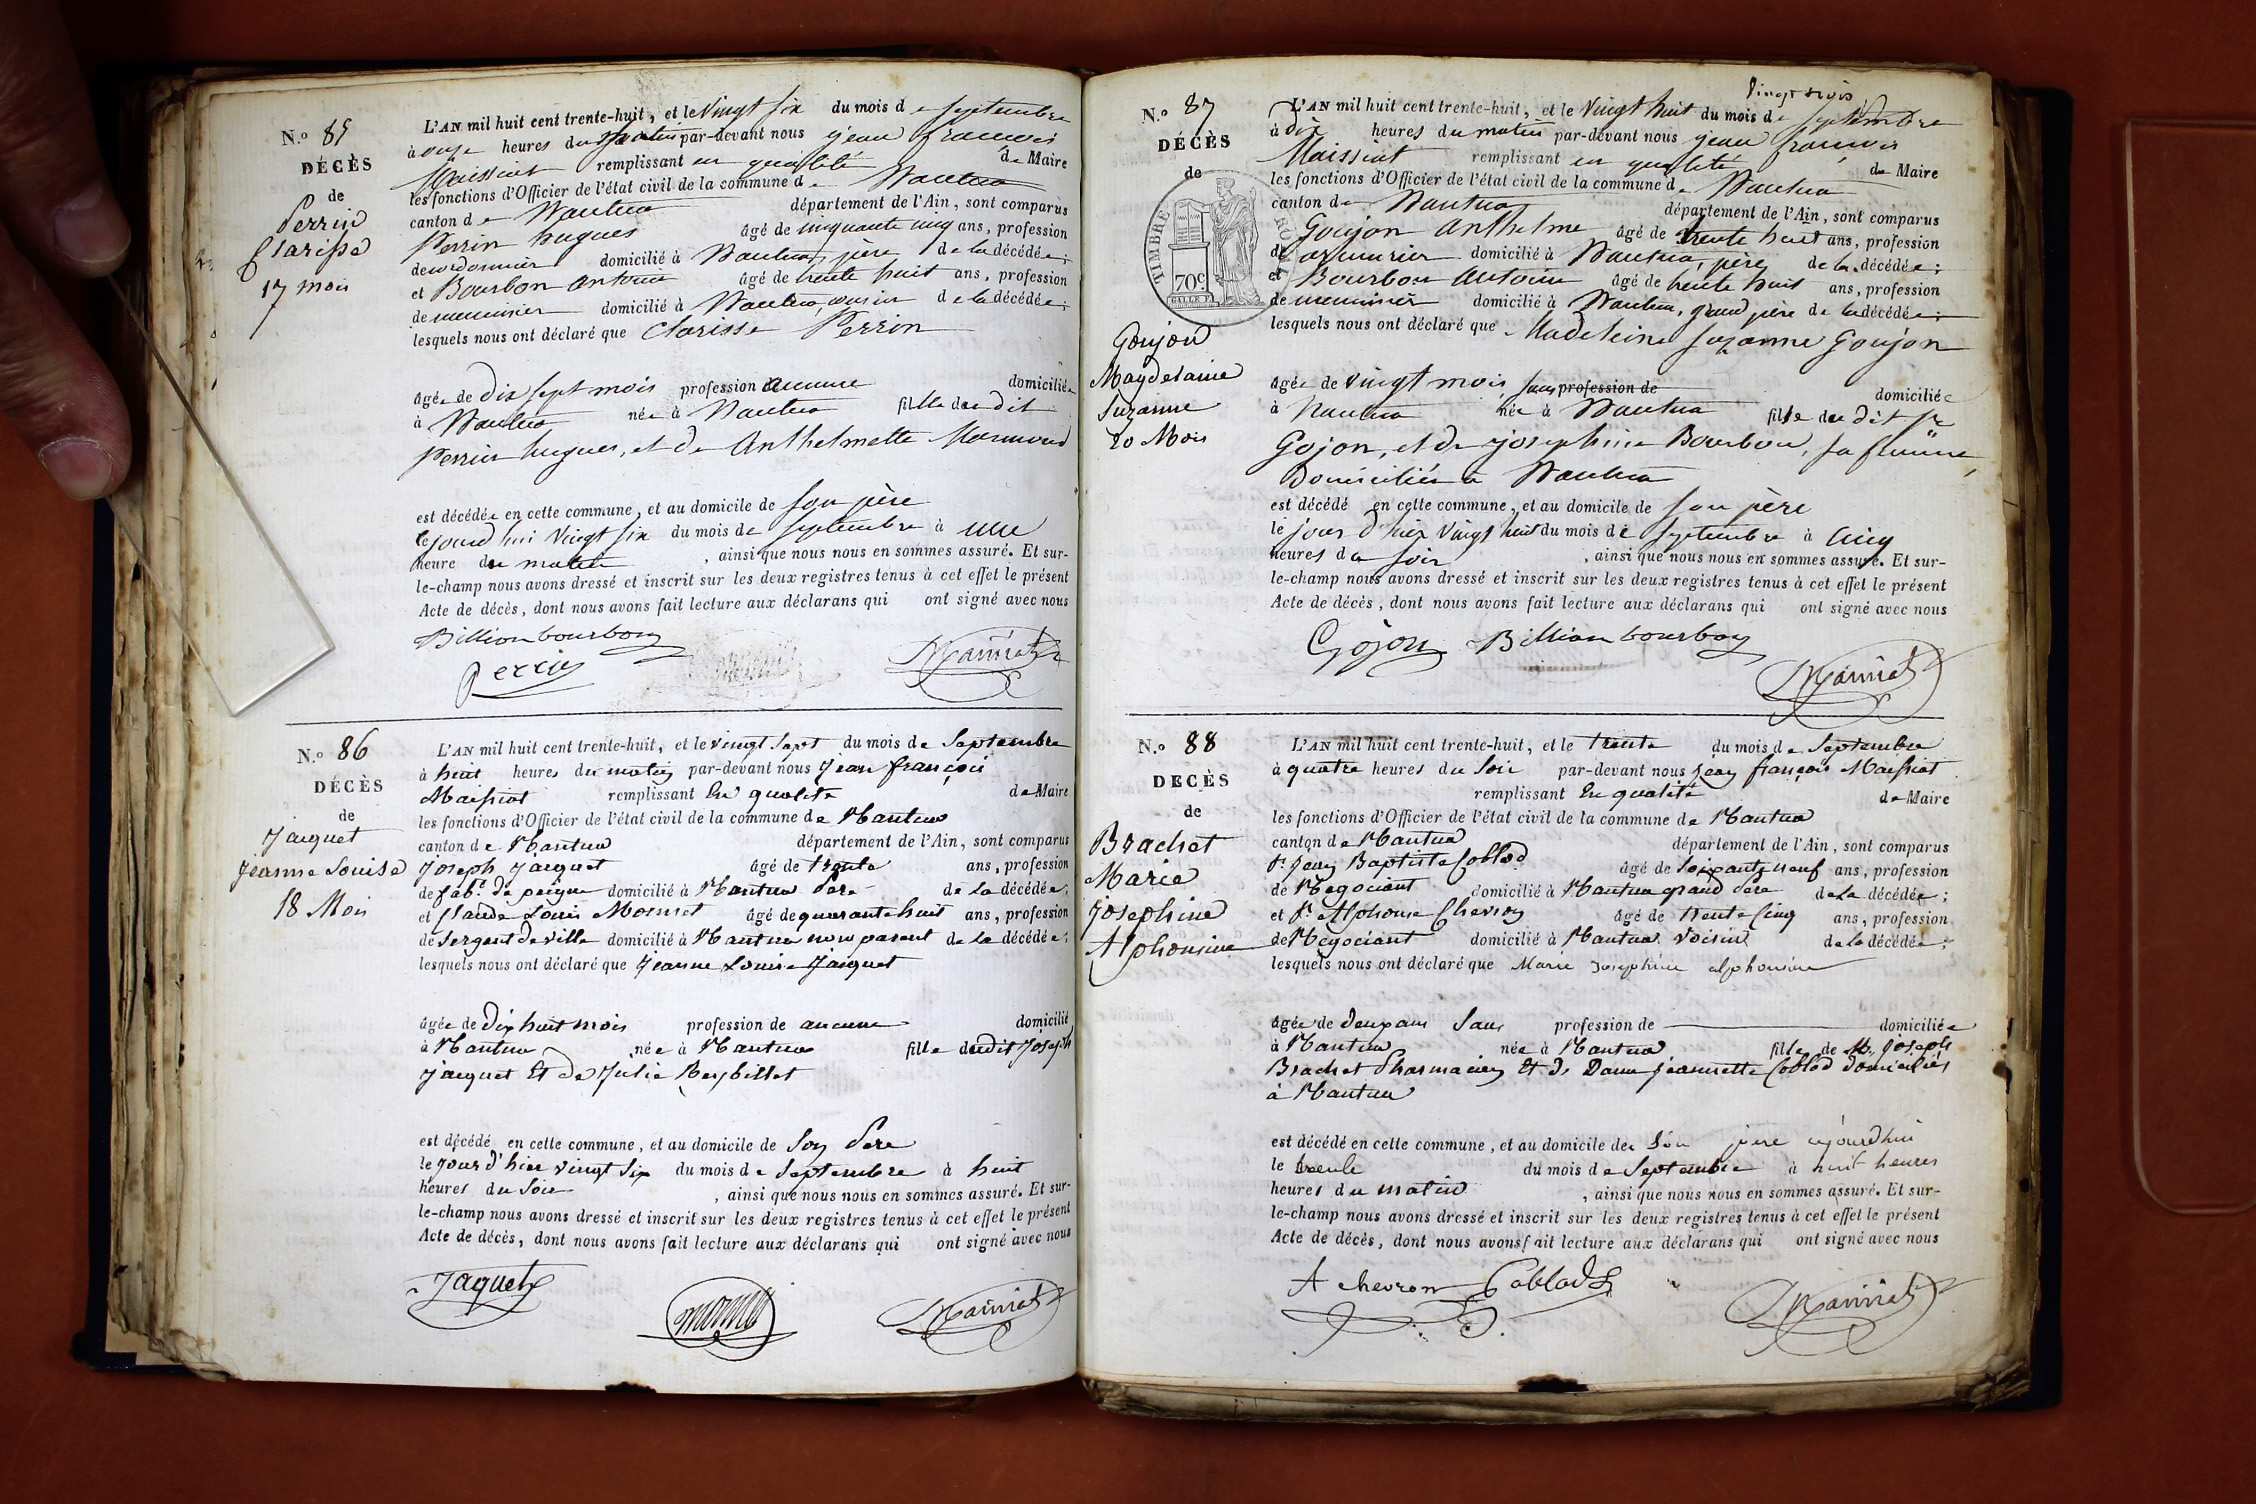 N.° 85
DÉCÈS
de
Perrin
Clarisse
17 mois
L'AN mil huit cent trente-huit, et le Vingt six du mois de Septembre
à onze heures du matin par-devant nous jean françois
Maissiat remplissant en qualité de Maire
les fonctions d'Officier de l'état civil de la commune de Nantua
canton de Nantua département de l'Ain, sont comparus
Perrin hugues âgé de cinquante cinq ans, profession
de cordonnier domicilié à Nantua, père de la décédée;
et Bourbon antoine âgé de trente huit ans, profession
de menuisier domicilié à Nantua, cousin de la décédée;
lesquels nous ont déclaré que Clarisse Perrin
âgée de dix sept mois profession aucune domiciliée
à Nantua née à Nantua fille du dit
Perrin hugues, et de Anthelmette Marmond
est décédée en cette commune, et au domicile de son père
le jourd'hui Vingt six du mois de septembre à une
heure du matin, ainsi que nous nous en sommes assuré. Et sur-
le-champ nous avons dressé et inscrit sur les deux registres tenus à cet effet le présent
Acte de décès, dont nous avons fait lecture aux déclarans qui ont signé avec nous
Billion bourbon
Perrin Maissiat
N.° 86
DÉCÈS
de
Jaiquet
Jeanne Louise
18 Mois
L'AN mil huit cent trente-huit, et le vingt Sept du mois de Septembre
à huit heures du matin par-devant nous Jean françois
Maissiat remplissant En qualité de Maire
les fonctions d'Officier de l'état civil de la commune de Nantua
canton de Nantua département de l'Ain, sont comparus
Joseph Jaiquet âgé de trente ans, profession
de fab.t de peigne domicilié à Nantua Père de la décédée;
et Claude Louis Monnet âgé de quarante huit ans, profession
de Sergent de ville domicilié à Nantua non parent de la décédée;
lesquels nous ont déclaré que Jeanne Louise Jaiquet
âgée de dix huit mois profession de aucune domicilié
à Nantua née à Nantua fille dudit Joseph
Jaiquet Et de Julie Reybillet
est décédé en cette commune, et au domicile de Son Père
le jour d'hier vingt Six du mois de Septembre à huit
heures du Soir, ainsi que nous nous en sommes assuré. Et sur-
le-champ nous avons dressé et inscrit sur les deux registres tenus à cet effet le présent
Acte de décès, dont nous avons fait lecture aux déclarans qui ont signé avec nous
Jaquet Monnet Maissiat
Vingt trois
N.° 87
DÉCÈS
de
TIMBRE ROYAL
70c
Goujon
Magdelaine
Suzanne
20 Mois
L'AN mil huit cent trente-huit, et le Vingt huit du mois de Septembre
à dix heures du matin par-devant nous jean françois
Maissiat remplissant en qualité de Maire
les fonctions d'Officier de l'état civil de la commune de Nantua
canton de Nantua département de l'Ain, sont comparus
Goujon Anthelme âgé de trente huit ans, profession
de armurier domicilié à Nantua, père de la décédée;
et Bourbon Antoine âgé de trente huit ans, profession
de menuisier domicilié à Nantua, grand père de la décédée;
lesquels nous ont déclaré que Madeleine Suzanne Goujon
âgée de vingt mois, sans profession de domiciliée
à Nantua née à Nantua fille du dit Sr
Gojon, et de josephine Bourbon, sa femme,
Domiciliés à Nantua
est décédé en cette commune, et au domicile de son père
le jour d'hier Vingt huit du mois de Septembre à Cinq
heures du soir, ainsi que nous nous en sommes assuré. Et sur-
le-champ nous avons dressé et inscrit sur les deux registres tenus à cet effet le présent
Acte de décès, dont nous avons fait lecture aux déclarans qui ont signé avec nous
Gojon Billion bourbon
Maissiat
N.° 88
DÉCÈS
de
Brachet
Marie
Josephine
Alphonsine
L'AN mil huit cent trente-huit, et le trente du mois de Septembre
à quatre heures du Soir par-devant nous Jean françois Maissiat
remplissant En qualité de Maire
les fonctions d'Officier de l'état civil de la commune de Nantua
canton de Nantua département de l'Ain, sont comparus
Sr Jean Baptiste Coblod âgé de Soixante neuf ans, profession
de Négociant domicilié à Nantua grand Père de la décédée;
et Sr Alphonse Chevron âgé de trente Cinq ans, profession
de Négociant domicilié à Nantua Voisin de la décédée;
lesquels nous ont déclaré que Marie Josephine alphonsine
âgée de deux ans Sans profession de domiciliée
à Nantua née à Nantua fille de Mr Joseph
Brachet Pharmacien Et de Dame jeannette Coblod domiciliés
à Nantua
est décédé en cette commune, et au domicile de Son père aujourdhui
le trente du mois de Septembre à huit heures
heures du matin, ainsi que nous nous en sommes assuré. Et sur-
le-champ nous avons dressé et inscrit sur les deux registres tenus à cet effet le présent
Acte de décès, dont nous avons fait lecture aux déclarans qui ont signé avec nous
A chevron Coblod Maissiat